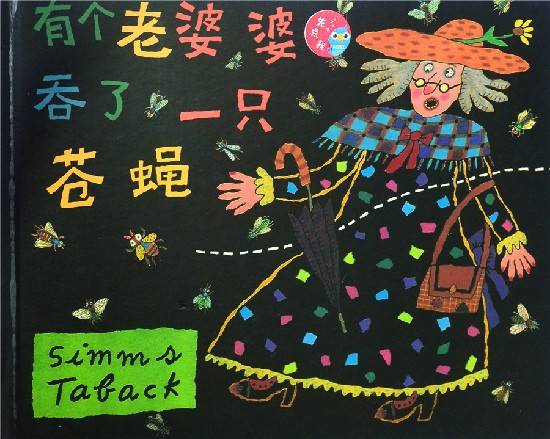 有个老婆婆
吞了一只
苍蝇
Simms
Taback